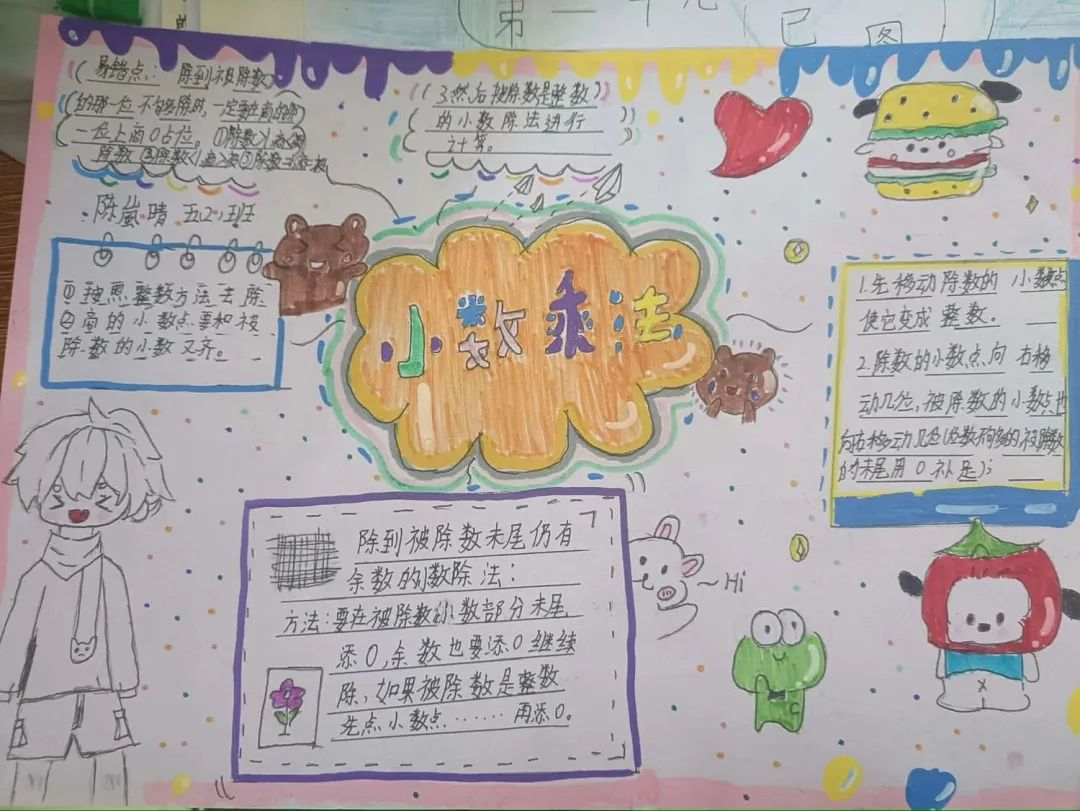 第二单元
已图
易错点： 除到被除数
的那一位不够除时，一定要在商的那
一位上商0占位。①除数
除数
3.然后按除数是整数
的小数除法进行
计算。
陈嵐晴 五.2.班
①按照整数方法去除
②商的小数点要和被
除数的小数又齐。
小数乘法
1.先移动除数的 小数点
使它变成整数。
2.除数的小数点向右移
动几位，被除数的小数点也
向右移动几位(位数不够的被除数
的末尾用0补足)；
除到被除数末尾仍有
余数的小数除法：
方法：要在被除数小数部分末尾
添0，余数也要添0继续
除，如果被除数是整数
先点小数点……再添0。
~Hi